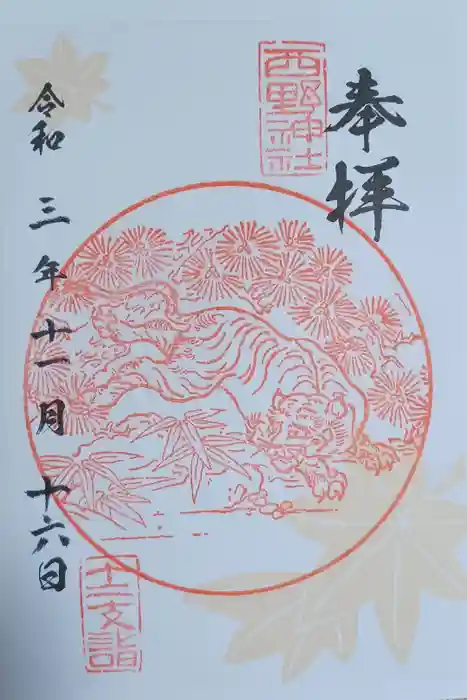 奉拝
西野神社
令和三年十一月十六日
十二支詣